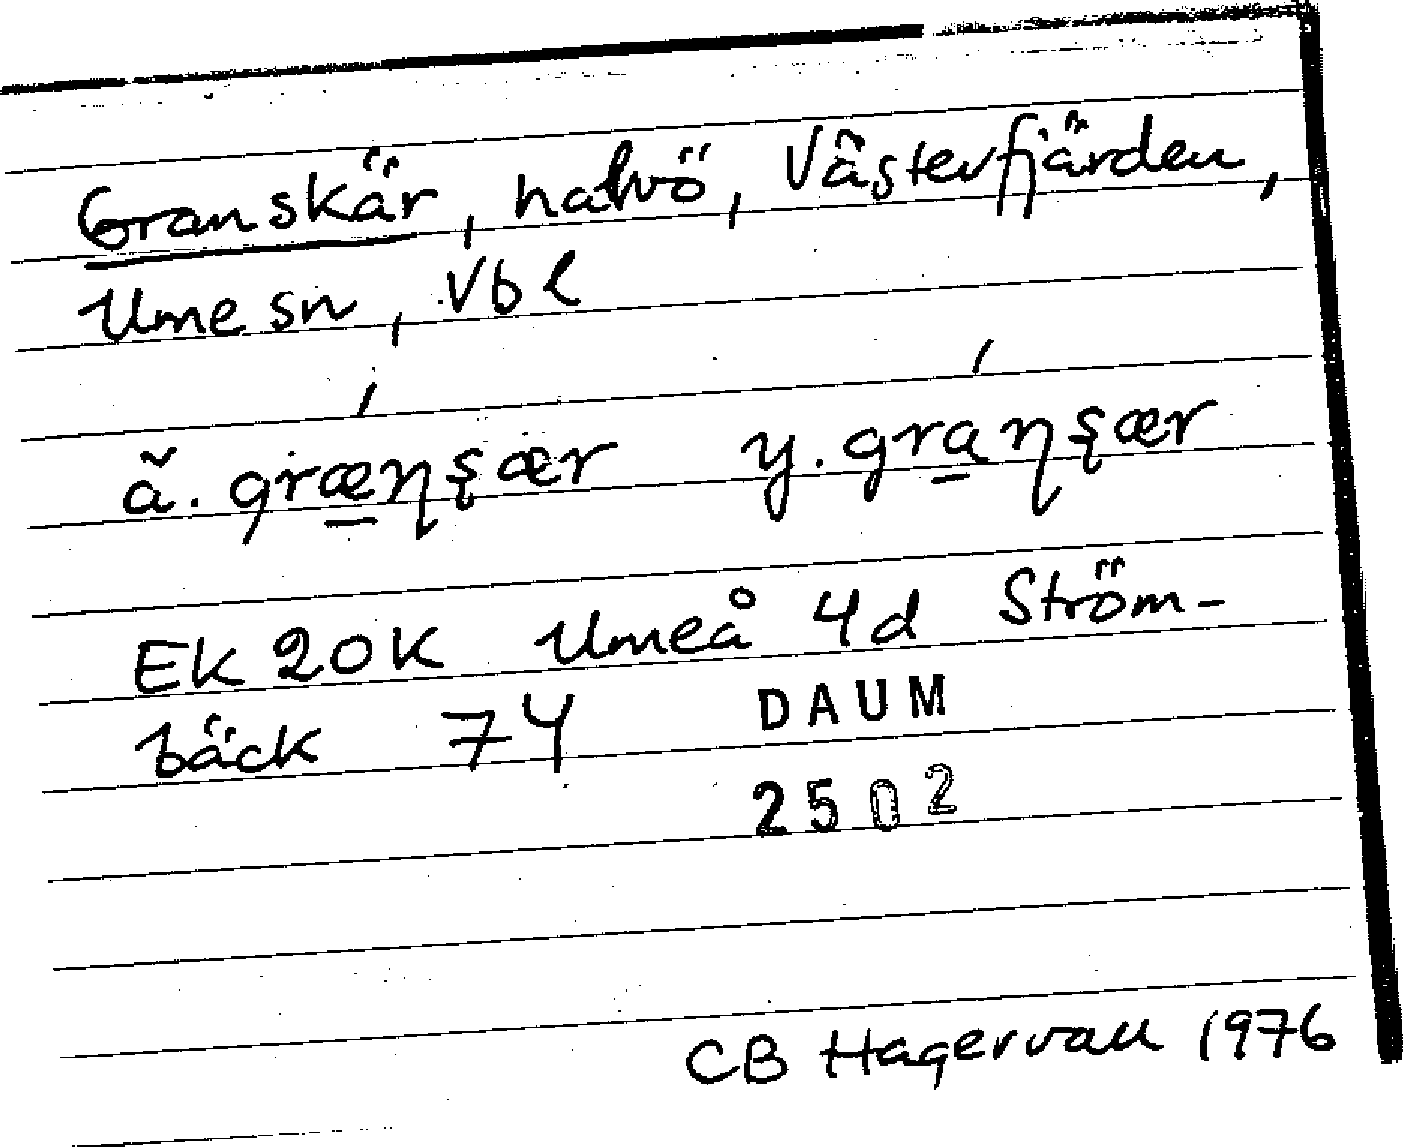 Granskär, halvö, Västerfjärden,
Umesn, Vbl
ä. græŋʂær y. graŋʂær
EK 20K Umeå 4d Ström-
bäck 74
DAUM
2502
CB Hagervall 1976